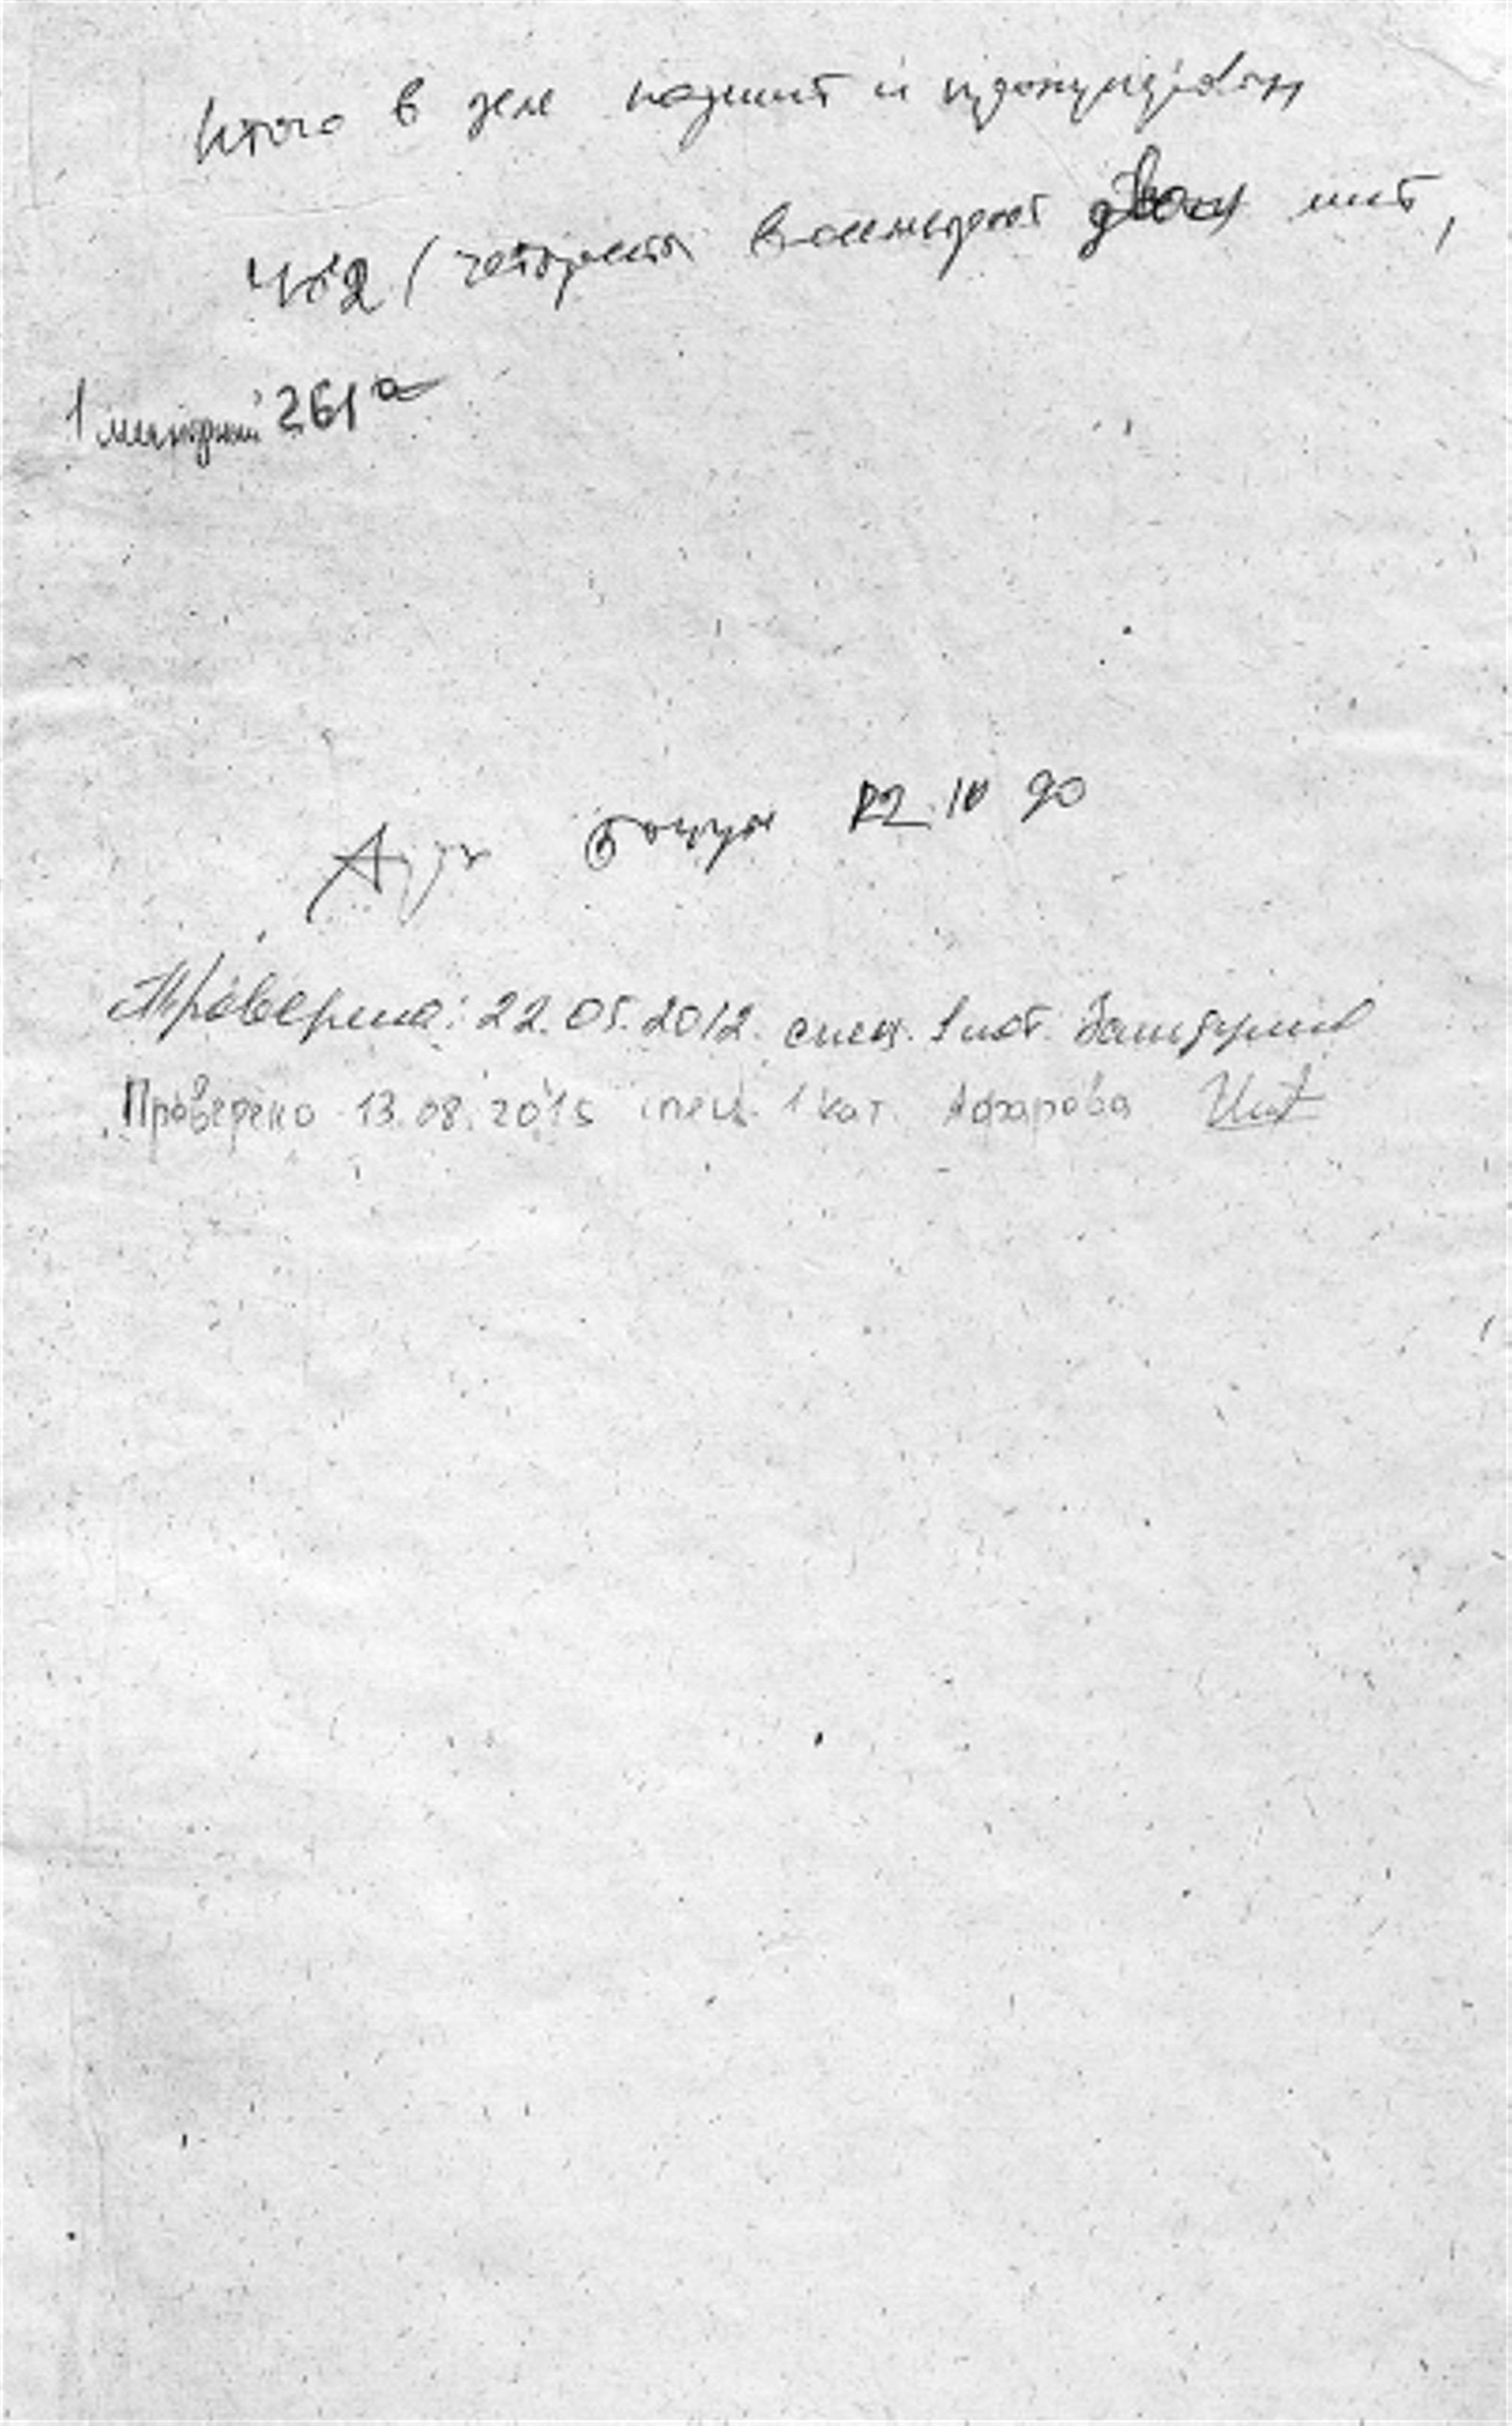 Итого в деле подшит и пронумерован
482 (четыреста восемьдесят два лист,
1 литерный 261а
22.10.90
Проверила: 22.05.2012. спец. 1 кат.
Проверено 13.08.2015 спец. 1 кат.